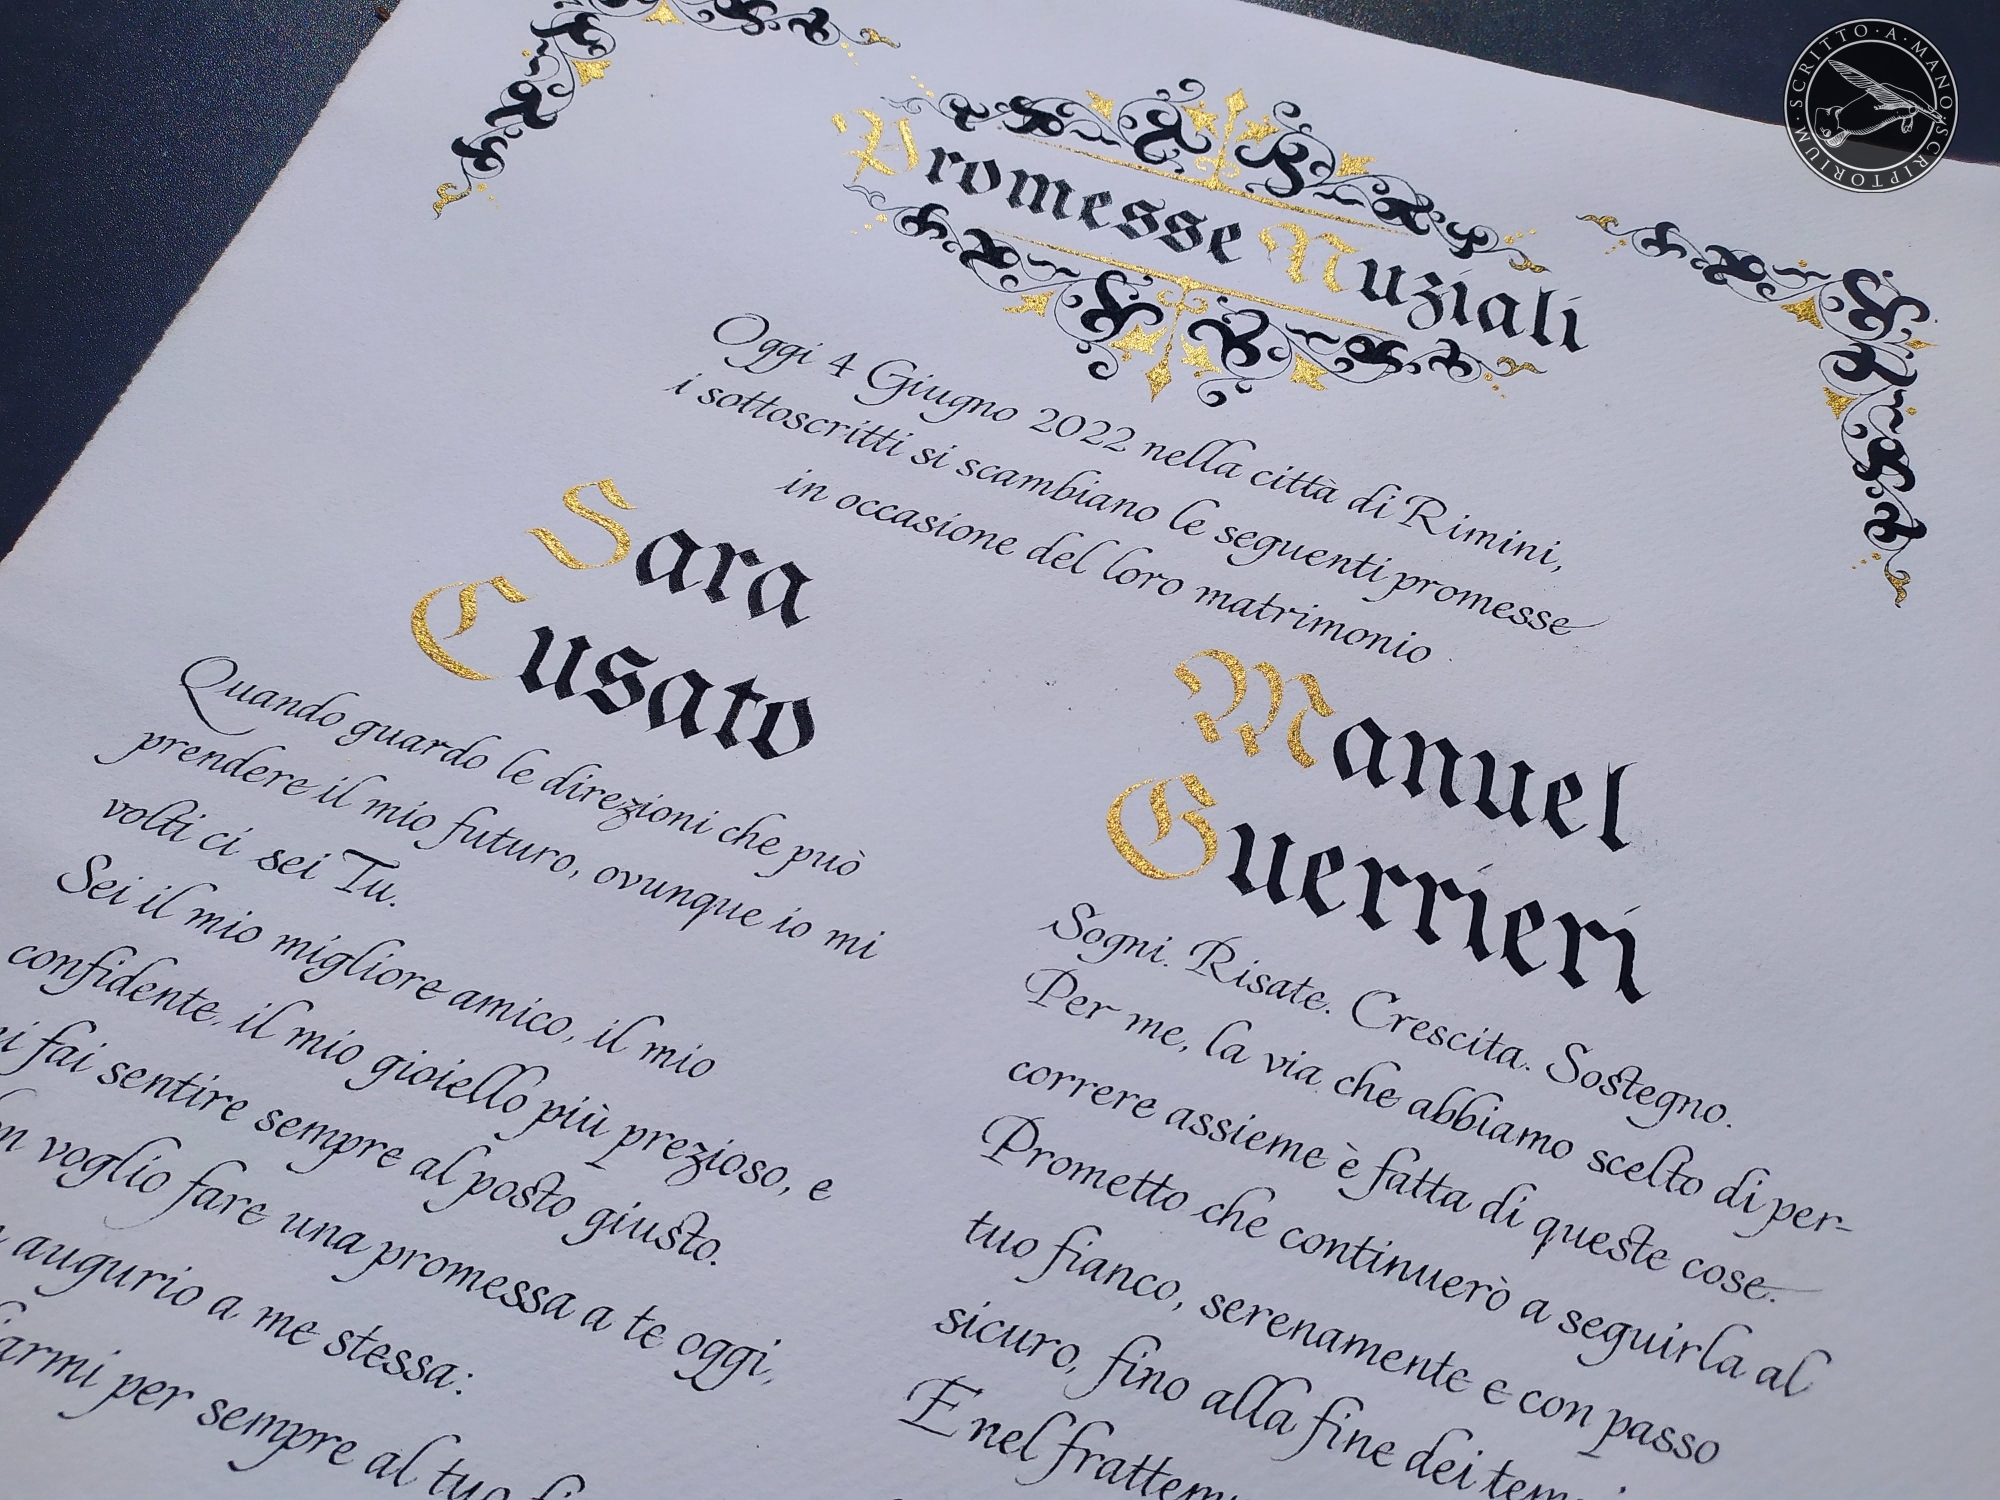 SCRITTO · A · MANO · SCRIPTORIUM
Promesse Nuziali
Oggi 4 Giugno 2022 nella città di Rimini,
i sottoscritti si scambiano le seguenti promesse
in occasione del loro matrimonio
Sara
Cusato
Quando guardo le direzioni che può
prendere il mio futuro, ovunque io mi
volti ci sei Tu.
Sei il mio migliore amico, il mio
confidente, il mio gioiello più prezioso, e
fai sentire sempre al posto giusto.
voglio fare una promessa a te oggi,
augurio a me stessa:
per sempre al tuo
Manuel
Guerrieri
Sogni. Risate. Crescita. Sostegno.
Per me, la via che abbiamo scelto di per-
correre assieme è fatta di queste cose.
Prometto che continuerò a seguirla al
tuo fianco, serenamente e con passo
sicuro, fino alla fine dei
E nel